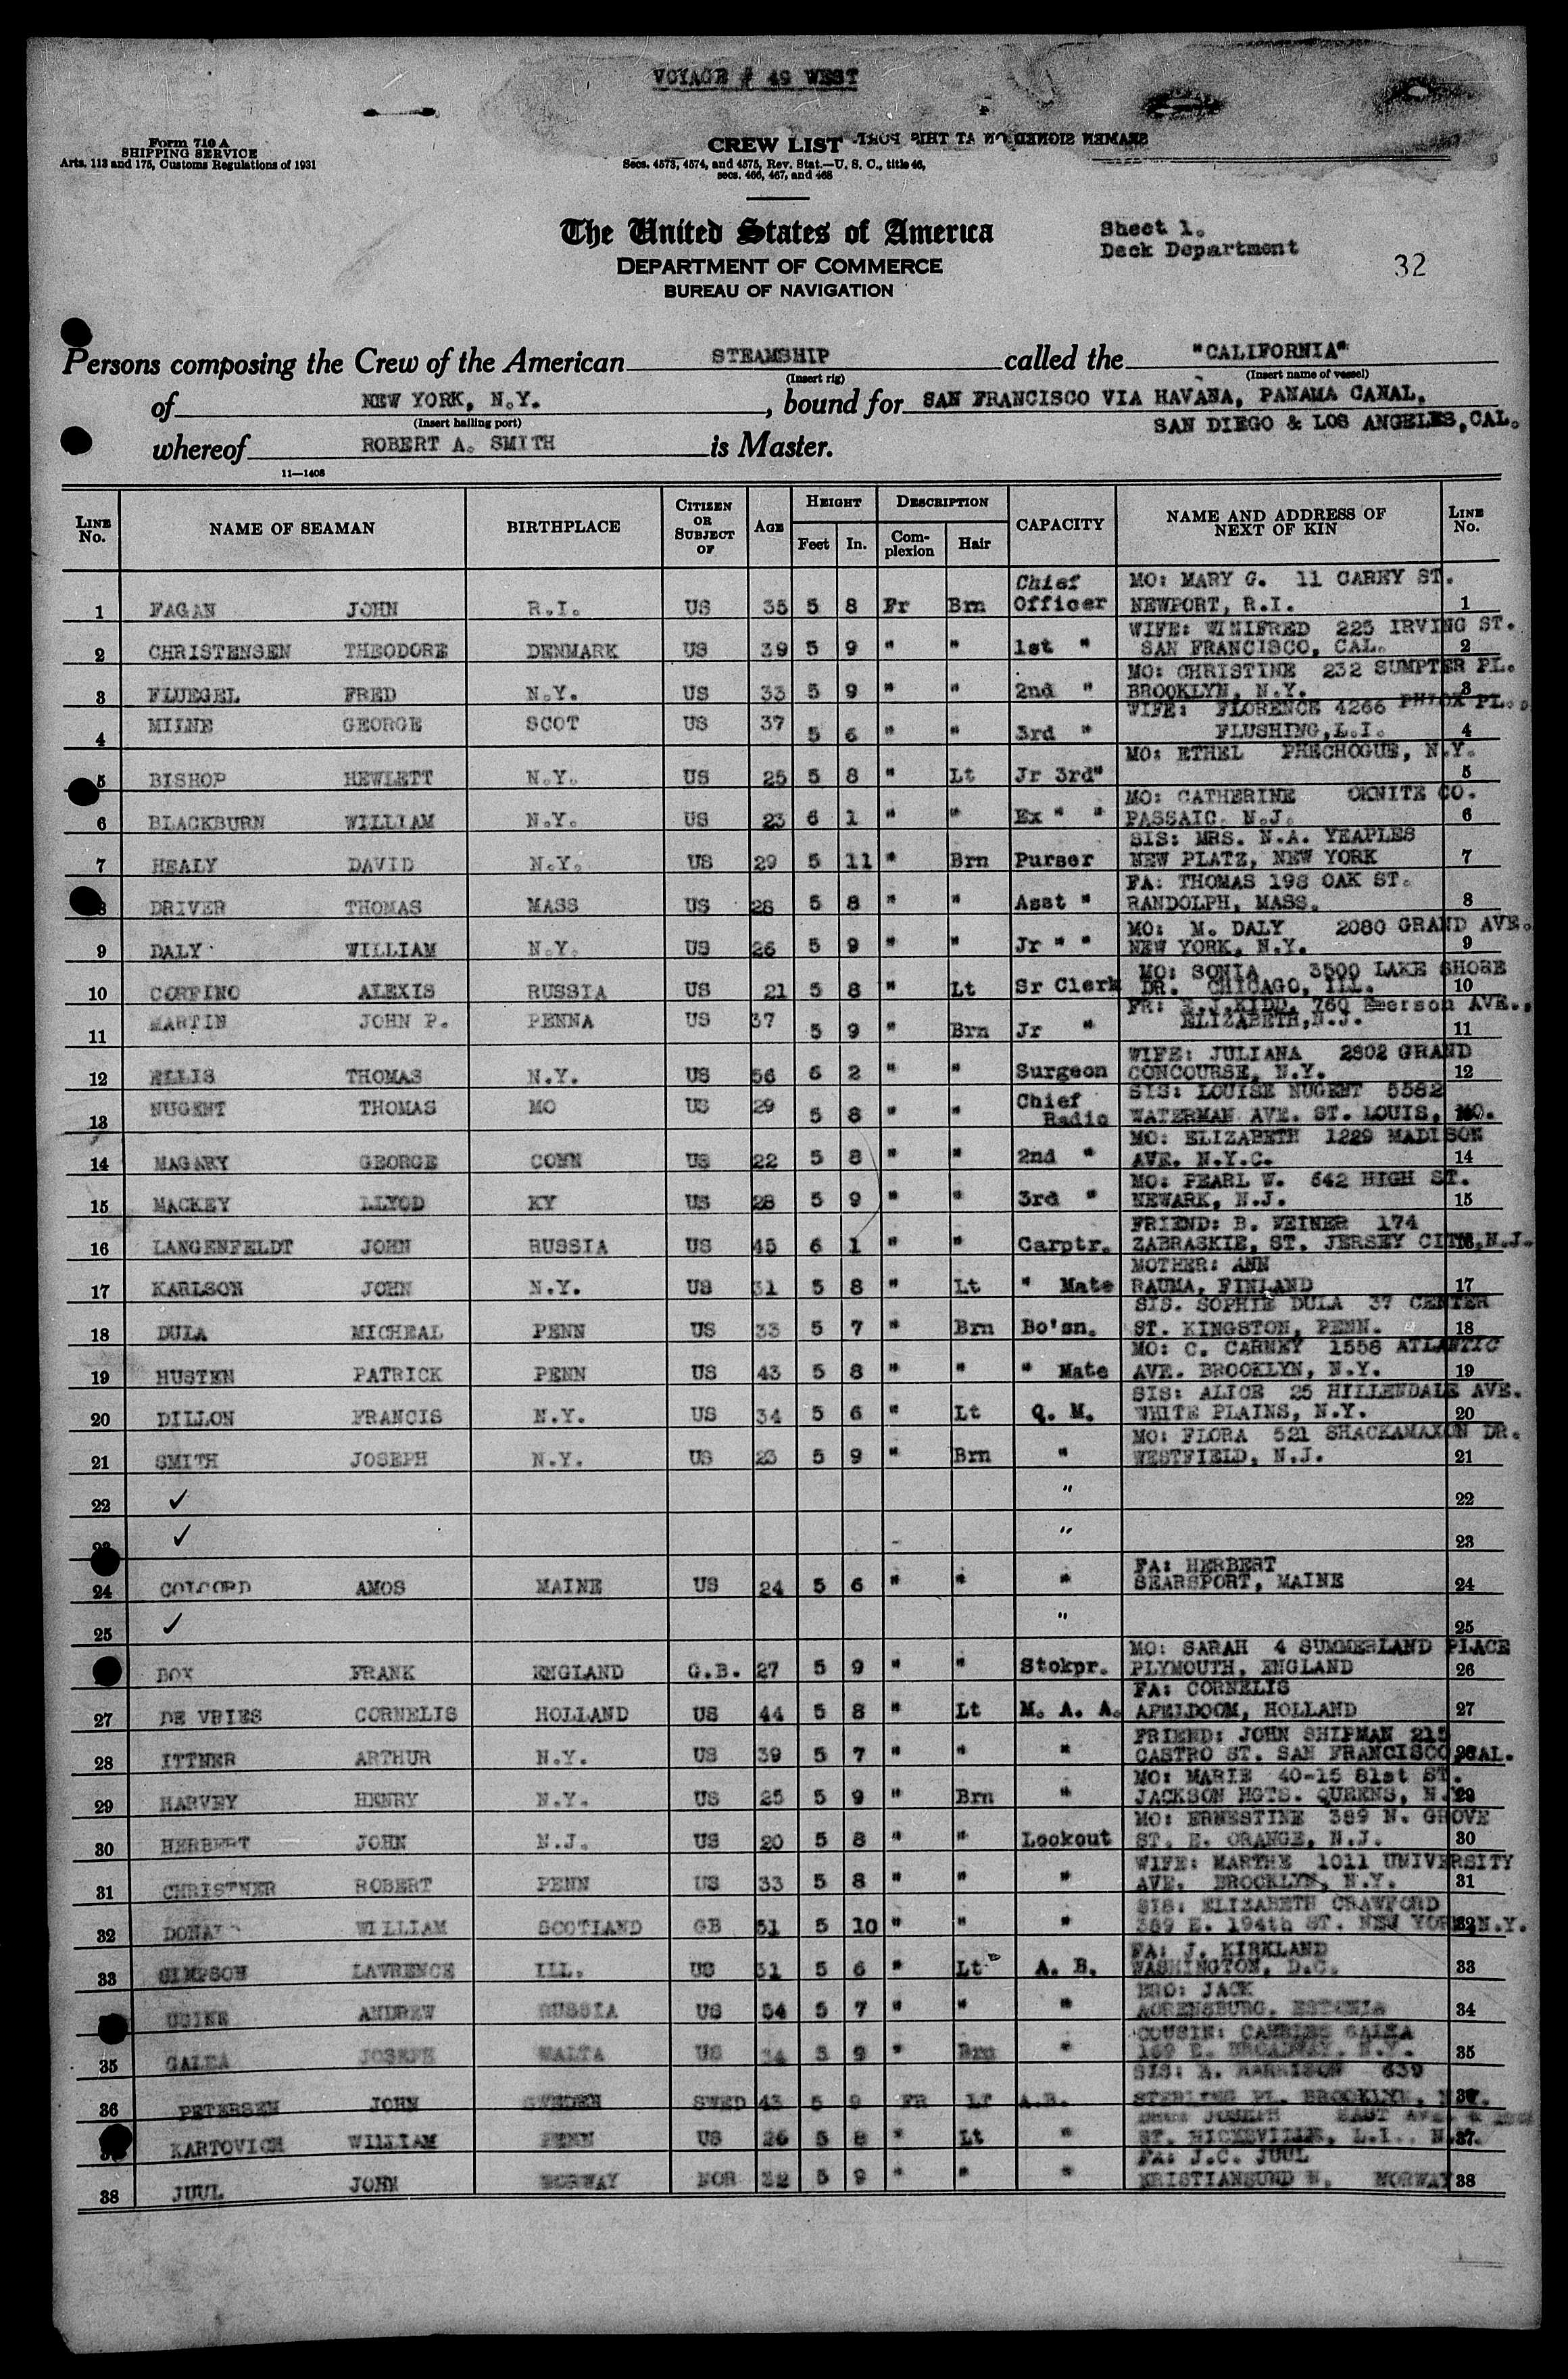 VOYAGE # 49 WEST
Form 710 A
SHIPPING SERVICE
Arts. 113 and 175, Customs Regulations of 1931
CREW LIST
SEAMEN SIGNED ON AT THIS PORT.
Secs. 4573, 4574, and 4575, Rev. Stat.—U. S. C., title 46,
secs. 466, 467, and 468
The United States of America
DEPARTMENT OF COMMERCE
BUREAU OF NAVIGATION
Sheet 1.
Deck Department
32
Persons composing the Crew of the American STEAMSHIP called the "CALIFORNIA"
(Insert rig) (Insert name of vessel)
of NEW YORK, N.Y., bound for SAN FRANCISCO VIA HAVANA, PANAMA CANAL,
(Insert hailing port) SAN DIEGO & LOS ANGELES, CAL.
whereof ROBERT A. SMITH is Master.
11—1406
LINE No. NAME OF SEAMAN BIRTHPLACE CITIZEN OR SUBJECT OF AGE HEIGHT Feet In. DESCRIPTION Complexion Hair CAPACITY NAME AND ADDRESS OF NEXT OF KIN LINE No.
1 FAGAN JOHN R.I. US 35 5 8 Fr Brn Chief Officer MO: MARY G. 11 CAREY ST. NEWPORT, R.I. 1
2 CHRISTENSEN THEODORE DENMARK US 39 5 9 " " 1st " WIFE: WINIFRED 225 IRVING ST. SAN FRANCISCO, CAL. 2
3 FLUEGEL FRED N.Y. US 33 5 9 " " 2nd " MO: CHRISTINE 232 SUMPTER PL. BROOKLYN, N.Y. 3
4 MILNE GEORGE SCOT US 37 5 6 " " 3rd " WIFE: FLORENCE 4266 PHLOX PL. FLUSHING, L.I. 4
5 BISHOP HEWLETT N.Y. US 25 5 8 " Lt Jr 3rd" MO: ETHEL PRECHOGUE, N.Y. 5
6 BLACKBURN WILLIAM N.Y. US 23 6 1 " " Ex " " MO: CATHERINE OKNITE CO. PASSAIC, N.J. 6
7 HEALY DAVID N.Y. US 29 5 11 " Brn Purser SIS: MRS. N.A. YEAPLES NEW PLATZ, NEW YORK 7
8 DRIVER THOMAS MASS US 28 5 8 " " Asst " FA: THOMAS 198 OAK ST. RANDOLPH, MASS. 8
9 DALY WILLIAM N.Y. US 26 5 9 " " Jr " " MO: M. DALY 2080 GRAND AVE. NEW YORK, N.Y. 9
10 CORFINO ALEXIS RUSSIA US 21 5 8 " Lt Sr Clerk MO: SONIA 3500 LAKE SHORE DR. CHICAGO, ILL. 10
11 MARTIN JOHN P. PENNA US 37 5 9 " Brn Jr " FR: E.J.KIDD, 760 Emerson AVE., ELIZABETH, N.J. 11
12 ELLIS THOMAS N.Y. US 56 6 2 " " Surgeon WIFE: JULIANA 2802 GRAND CONCOURSE, N.Y. 12
13 NUGENT THOMAS MO US 29 5 8 " " Chief Radio SIS: LOUISE NUGENT 5582 WATERMAN AVE. ST. LOUIS, MO.
14 MAGARY GEORGE CONN US 22 5 8 " " 2nd " MO: ELIZABETH 1229 MADISON AVE. N.Y.C. 14
15 MACKEY LLYOD KY US 28 5 9 " " 3rd " MO: PEARL W. 642 HIGH ST. NEWARK, N.J. 15
16 LANGENFELDT JOHN RUSSIA US 45 6 1 " " Carptr. FRIEND: B. WEINER 174 ZABRASKIE, ST. JERSEY CITY, N.J.
17 KARLSON JOHN N.Y. US 31 5 8 " Lt " Mate MOTHER: ANN RAUMA, FINLAND 17
18 DULA MICHEAL PENN US 33 5 7 " Brn Bo'sn. SIS. SOPHIE DULA 37 CENTER ST. KINGSTON, PENN. 18
19 HUSTEN PATRICK PENN US 43 5 8 " " " Mate MO: C. CARNEY 1558 ATLANTIC AVE. BROOKLYN, N.Y. 19
20 DILLON FRANCIS N.Y. US 34 5 6 " Lt Q. M. SIS: ALICE 25 HILLENDALE AVE. WHITE PLAINS, N.Y. 20
21 SMITH JOSEPH N.Y. US 23 5 9 " Brn " MO: FLORA 521 SHACKAMAXON DR. WESTFIELD, N.J. 21
22 ✓ " 22
✓ " 23
24 COLCORD AMOS MAINE US 24 5 6 " " " FA: HERBERT SEARSPORT, MAINE 24
25 ✓ " 25
BOX FRANK ENGLAND G.B. 27 5 9 " " Stokpr. MO: SARAH 4 SUMMERLAND PLACE PLYMOUTH, ENGLAND 26
27 DE VRIES CORNELIS HOLLAND US 44 5 8 " Lt M. A. A. FA: CORNELIS APELDOOM, HOLLAND 27
28 ITTNER ARTHUR N.Y. US 39 5 7 " " " FRIEND: JOHN SHIPMAN 215 CASTRO ST. SAN FRANCISCO, CAL.
29 HARVEY HENRY N.Y. US 25 5 9 " Brn " MO: MARIE 40-15 81st ST. JACKSON HGTS. QUEENS, N.Y. 29
30 HERBERT JOHN N.J. US 20 5 8 " " Lookout MO: ERNESTINE 389 N. GROVE ST. E. ORANGE, N.J. 30
31 CHRISTNER ROBERT PENN US 33 5 8 " " " WIFE: MARTHE 1011 UNIVERSITY AVE. BROOKLYN, N.Y. 31
32 DONALD WILLIAM SCOTLAND GB 51 5 10 " " " SIS: ELIZABETH CRAWFORD 389 E. 194th ST. NEW YORK, N.Y.
33 SIMPSON LAWRENCE ILL. US 31 5 6 " Lt A. B. FA: J. KIRKLAND WASHINGTON, D.C. 33
ANDREW RUSSIA US 54 5 7 " " " BRO: JACK ESTONIA 34
35 GALEA JOSEPH MALTA US 34 5 9 " Brn " COUSIN: GALEA 169 E. BROADWAY, N.Y. 35
36 PETERSEN JOHN SWEDEN SWED 43 5 9 FR LT A.B. SIS: A. HARRISON 639 STERLING PL. BROOKLYN, N.Y.
KARTOVICH WILLIAM PENN US 26 5 8 " Lt " JOSEPH EAST AVE. ST. HICKSVILLE, L.I. N.Y. 37
38 JUUL JOHN NORWAY NOR 32 5 9 " " " FA: J.C. JUUL KRISTIANSUND N. NORWAY 38